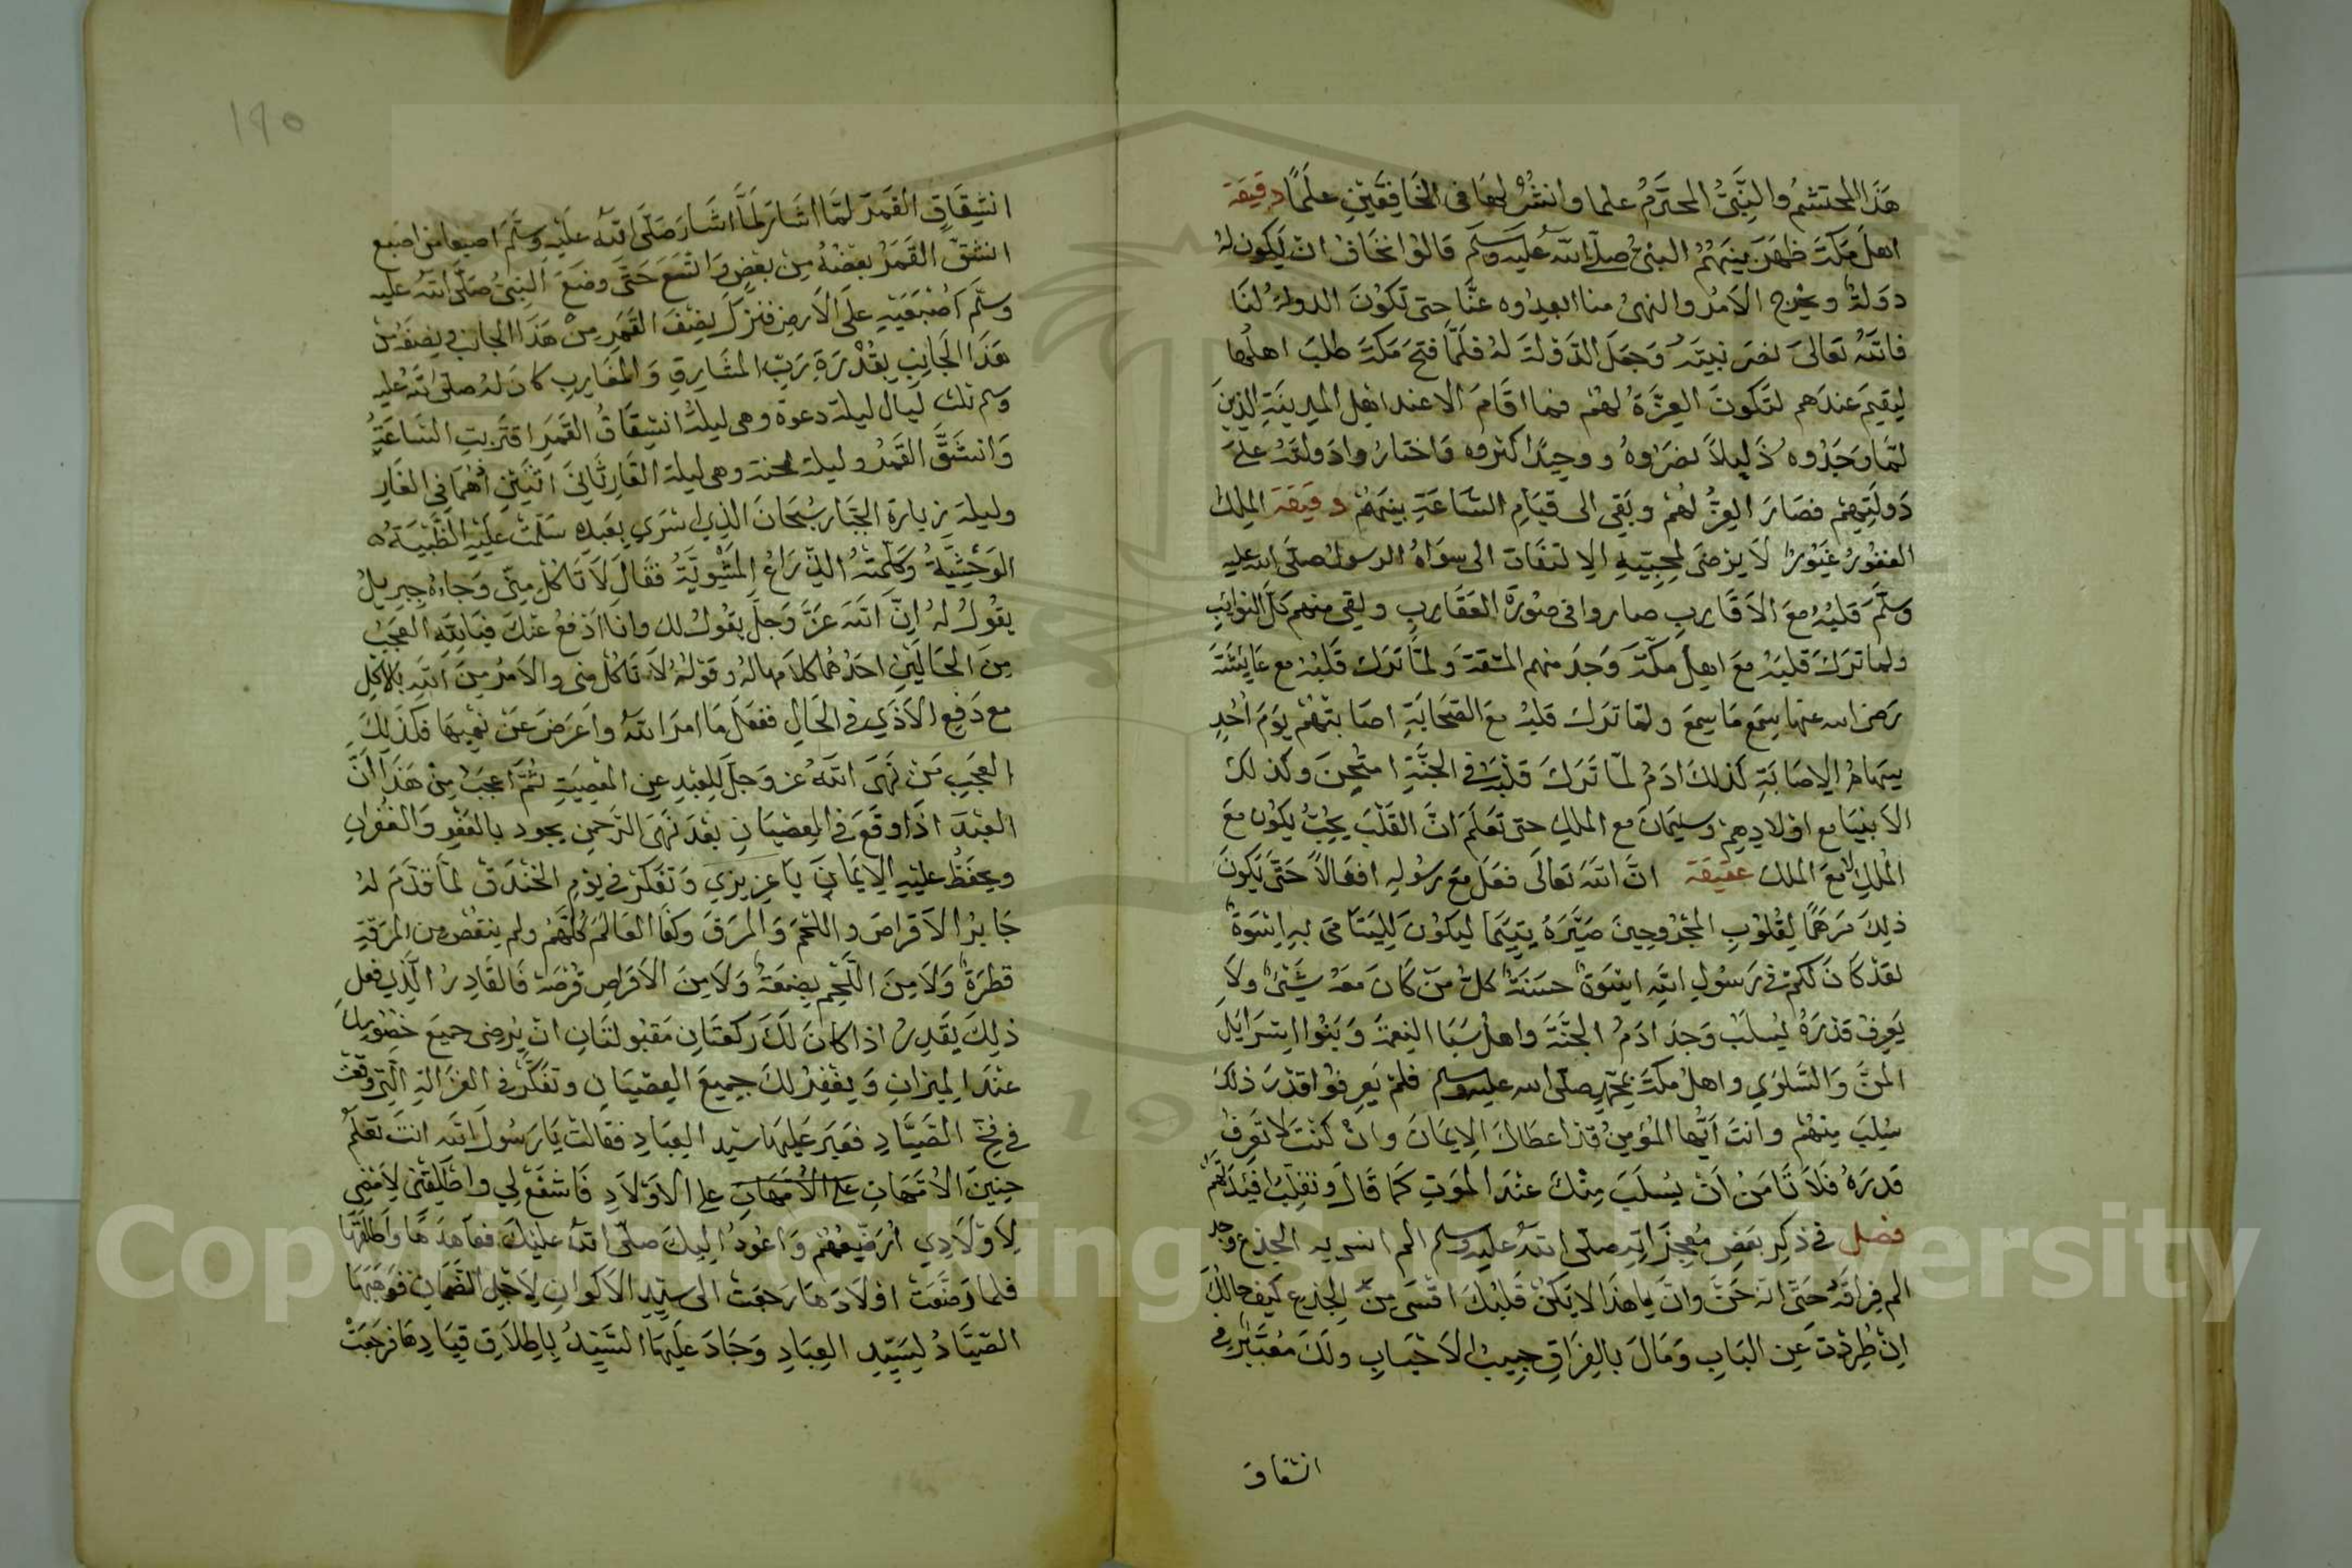 هَذَا المحتشمُ والنَّبىُّ المحتَرَمُ علما وانشُرُ لهَا فى الخَافِقَيْنِ علَمًا دقيقة
اهلَ مَكَّة ظهَرَ بينَهُمُ النبىُّ صلى الله عليه وسلم قَالوُا نخَافُ انْ يَكون لهُ
دوَلَةٌ ويخرج الاَمرُ والنهىُ منا ابعدُوه عنَّا حتى تَكوُنَ الدولةُ لنَا
فاللهُ تعَالىَ نصَرَ نبيّهُ وَجَعَلَ الدَّوْلةَ لهُ فلَمَّا فتحَ مَكةَ طلبَ اهلُها
ليقيمَ عندَهم لتَكونَ العِزَّةُ لهُمْ فما اقَامَ الا عند اهْلِ المدِينَةِ الذِينَ
لمّا وَجَدُوه ذَليلاً نصَرُوهُ ووحِيدًا كثروه وَاختارُوا دَولتَهُ علىَ
دَولَتِهِمْ فصَارَ العِزُّ لهُمْ وبَقى الى قيَامِ السَّاعَةِ بينَهُمْ دقيقة الملِكُ
الغفُورُ غيُورٌ لاَ يرْضَى لمحِبّيهِ الاِلتفَات الى سوَاهُ الرسولُ صلَّى الله عليه
وسلَّمَ قلبُهُ معَ الاَقَاربِ صاروا فى صوُرَةِ العَقَاربِ ولقى منهم كلَّ النوائِبِ
ولما ترَكَ قلبَهُ معَ اهلِ مكّةَ وَجدَ منهم المشقةَ ولمَّا تَرَكَ قَلبَهُ مع عَايشَةَ
رَضى الله عنها سِمَع مَا سِمعَ ولمّا تَرَكَ قلبهُ معَ الصَّحَابَةِ اصَابتْهُمْ يوَمَ اُحُدٍ
سِهَامُ الاِصَابَةِ كذلِكَ ادَمُ لمّا تَرَكَ قلْبَهُ فى الجنَّةِ امتُحِنَ وكذلك
الاَنبيَا مع اوْلادِهِمْ وسليمَانُ مع الملكِ حتى تَعَلَمَ انَّ القَلْبَ يجِبُ يكوُن معَ
المُلكِ لاَ معَ الملك عقيقة انَّ اللهَ تعَالَى فعَلَ معَ رسُولهِ افعَالاً حَتَّى يَكونَ
ذلِكَ مَرهَمًا لِقُلوُبِ المجْرُوحِينَ صَيَّرَهُ يَتِيمًا ليَكوُنَ لليَتَامَى بهِ اسْوَةٌ
لقَدْ كَانَ لكُمْ فى رَسوُلِ اللهِ اسْوَةٌ حسَنَةٌ كلُّ مَنْ كَانَ معَهُ شَىْءٌ ولاَ
يَعرِفُ قَدْرَهُ ليُسلَبْ وَجدَ ادَمُ الجنَّةَ واهلُ سَبَا النعمَةَ وَبَنُوا اسْرَايلَ
المنَّ وَالسَّلوَي واهلُ مكّةَ بمحمّدٍ صلّى الله عليه وسلم فلمْ يَعرِفوُا قدْرَ ذلكَ
سُلِبَ منهُمْ وانتَ اَيُّها المُؤْمِنُ قدْ اعطَاكَ الاِيمَانَ وانْ كنْتَ لا تَعرِفُ
قَدرَهُ فلاَ تَامَنُ اَنْ يُسلَبَ مِنْكَ عنْدَ الموَتِ كَمَا قَالَ ونقلِّبُ افْئِدَتَهُمْ
فصل فى ذكِر بعَضِ مُعجِزَاتِهِ صلّى اللهُ عليه وسلم الم انس به الجذع وجد
الم فرِاقَهُ حَتَّى انَّهُ حَنَّ وانَ يا هذَا لا يَكنْ قَلبُكَ اقْسَى مِنْ الجذعِ كيفَ حالُكَ
انْ طُرِدْتَ عَنِ البَابِ وَمَالَ بالفِرَاقِ حبِيبُ الاَحْبَابِ ولَكَ معُتَبَرٌ فى
انشقاق
١٩٥
انشِقَاقِ القَمَر لمّا اشَارَ لَمَّا اشَارَ صَلّى اللهُ عَلَيْهِ وسلّمَ اصبعا من اصبع
انشقّ القَمَرُ بعضُهُ مِنْ بعَضٍ وَاتسَعَ حَتّى وضَعَ النبِىُّ صَلّى اللهُ عليه
وسلّمَ اُصْبُعَيْهِ علَى الاَرضِ فنزَلَ نِصْفُ القَمَرِ مِنْ هَذَا الجانِب ونِصفُهُ مِنْ
هَذَا الجَانِبِ بِقُدْرَةِ رَبِّ المشَارِقِ وَالمغَارِبِ كانَ لهُ صلى اللهُ عليه
وسلم ثلث لَيَال ليلة دعوة وهى ليلةُ انشِقَاقُ القَمَرِ اقتَربتِ السَّاعَةُ
وَانشَقَّ القَمَرُ وليلة محنة وهى ليلة الغَارِ ثَانِىَ اثنَيْنِ اذْهُمَا فى الغَارِ
وليلة زيَارة الجبّار سُبْحَانَ الذِي اسْرَي بِعَبدِهِ سَلّمتْ علَيْهِ الظَّبْيَةُ
الوَحْشِيَّةُ وَكلّمَتهُ الذِّرَاعُ المشْويَّةُ فقَالَ لاَ تَاكلْ مِنّى وَجَاءهُ جبرِيلُ
يقُولُ لهُ اِنَّ اللهَ عَزَّ وَجلَّ يقوُلُ لك وانَا ادْفعُ عنْكَ فيَا للهِ العجَبُ
مِنَ الحَالَيْنِ احدُهُما كلامها لهُ وقوْلهُ لاَ تَاكُلْ منى والاَمرُ مِنَ اللهِ بالاَكلِ
مع دَفعِ الاَذَي فى الحَالِ ففعَلَ مَا امرَ اللهُ واَعرَضَ عَنْ نهْيهَا فكذَلِكَ
العجَبِ مَنْ نَهَى اللهُ عز وَجلّ للعبْدِ عنِ المعْصِيَةِ ثمَّ اعجَبُ مِنْ هَذَا اَنَّ
العبْدَ اذَا وقَعَ فى العِصْيَانِ بعْدَ نَهْىِ الرّحمنِ يجود بالعَفوِ وَالغفُرانِ
ويحفَظُ علَيْهِ الاِيمَانَ يَا عزِيزِي وَتفَكرْ فى يوَمِ الخنْدَقِ لمَّا قدَّمَ لهُ
جَابرُ الاَقرَاصَ واللحْمَ وَالمرَقَ وكَفَا العَالَمَ كُلَّهُمْ ولم ينقُصْ من المرَقةِ
قطرَةٌ وَلاَ مِنَ اللَّحْمِ بضعَةٌ وَلاَ مِنَ الاَقرَاصِ قُرْصَة فَالقَادِرُ الّذِي فعلَ
ذلِكَ يَقْدِرُ اذا كانَ لَكَ رَكعَتَانِ مَقبُولتَانِ انْ يُرضِى جميعَ خصُومِكَ
عنْدَ الميزانِ وَيغْفِرُ لكَ جميعَ العِصْيَانِ وتفَكّرْ فى الغزَالةِ الّتى وقعَتْ
فى فخِّ الصَّيَّادِ فعَبَرَ علَيهَا سيّد العِبَادِ فقالتْ يَا رَسُولَ الله انتَ تعَلَمُ
حنِينَ الاُمّهَاتِ علَى الاُمّهَات على الاَوْلاَدِ فَاشفَعْ لى واطْلقْنى لاَمْضى
لاَوْلاَدِي اُرضِعُهُمْ وَاعُودُ اليكَ صلّى اللهُ عليْكَ فعَاهدَهَا واَطْلقَهَا
فلما وَضّعَتْ اوْلاَدَهَا رَجعَتْ الى سيّدِ الاَكوانِ لاَجْلِ الضّمَانِ فوَهَبَهَا
الصَّيَّادُ لسَيّدِ العِبَادِ وَجَادَ علَيهَا السَّيّدُ باِطلاَقِ قيَادِهَا فرَجَعَتْ
Copyright © King Saud University